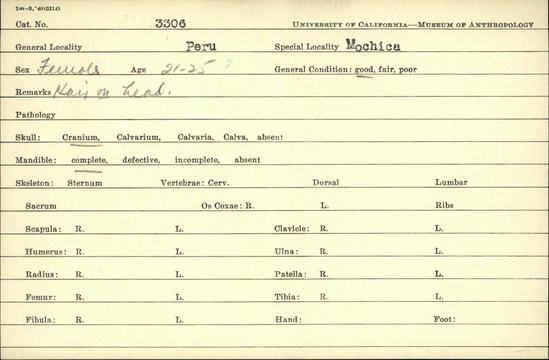 1m-3,'40(8114)
Cat. No. 3306 UNIVERSITY OF CALIFORNIA—MUSEUM OF ANTHROPOLOGY
General Locality Peru Special Locality Mochica
Sex Female Age 21-25 ? General Condition: good, fair, poor
Remarks Hair on head.
Pathology
Skull: Cranium, Calvarium, Calvaria, Calva, absent
Mandible: complete, defective, incomplete, absent
Skeleton: Sternum Vertebrae: Cerv. Dorsal Lumbar
Sacrum Os Coxae: R. L. Ribs
Scapula: R. L. Clavicle: R. L.
Humerus: R. L. Ulna: R. L.
Radius: R. L. Patella: R. L.
Femur: R. L. Tibia: R. L.
Fibula: R. L. Hand: Foot: